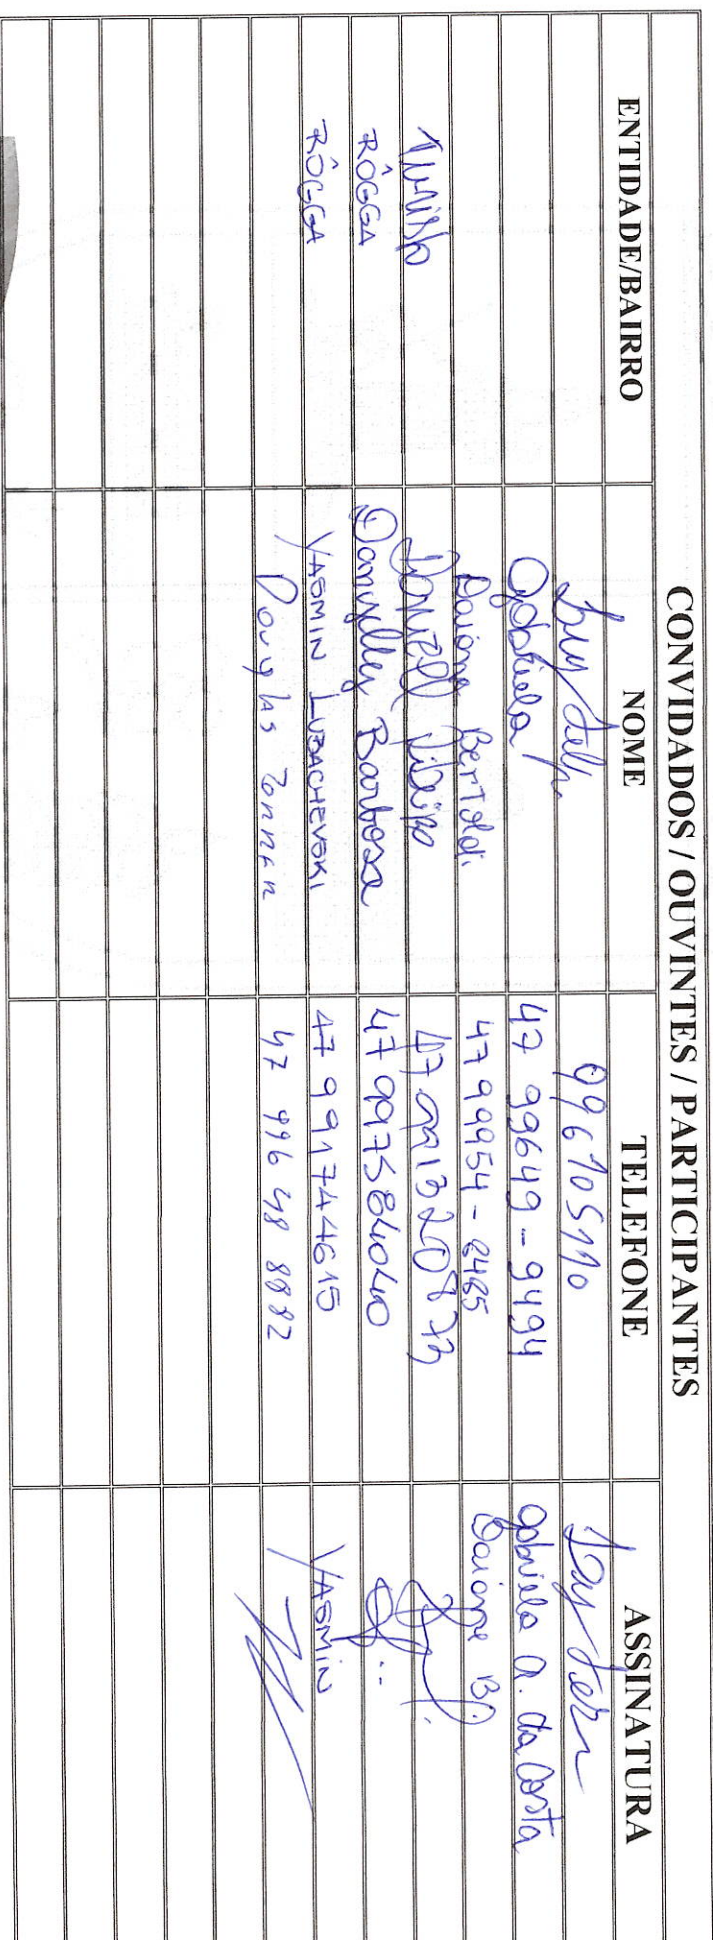 CONVIDADOS / OUVINTES / PARTICIPANTES
ENTIDADE/BAIRRO NOME TELEFONE ASSINATURA
996705110
Gabriela 47 99649-9494 Gabriela A. da Costa
Daiane Bertoldi 47 99954-8465 Daiane B.
Ribeiro
RÔGGA Danyelley Barbosa 47 997584040
RÔGGA YASMIN LUBACHEVSKI 47 991744615 YASMIN
Douglas Zonnen 47 996 48 8882